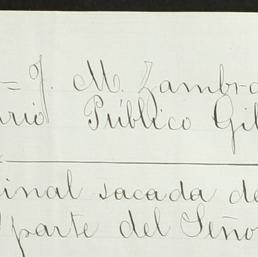 = J. M. Zambra
ario Público Gil
inal sacada de
parte del Seño